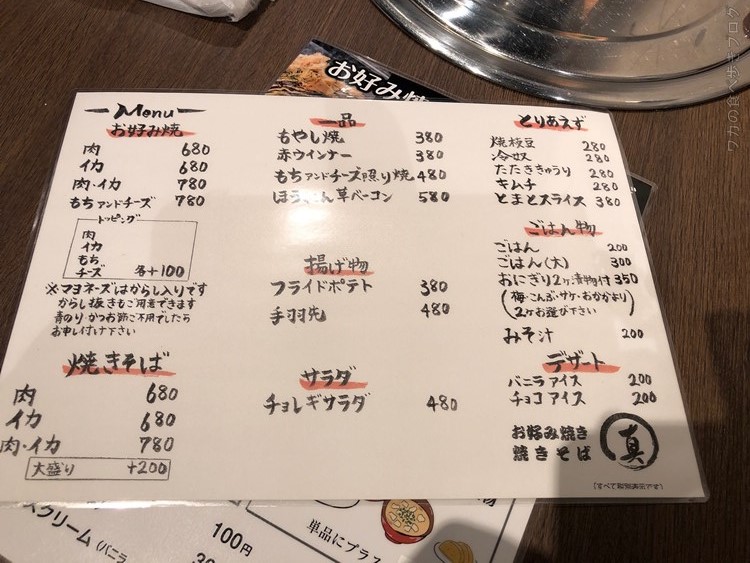 お好み焼
Menu
お好み焼
肉 680
イカ 680
肉・イカ 780
もちアンドチーズ 780
トッピング
肉
イカ
もち
チーズ 各+100
※マヨネーズはからし入りです
からし抜きもご用意できます
青のり・かつお節ご不用でしたら
お申し付け下さい
焼きそば
肉 680
イカ 680
肉・イカ 780
大盛り +200
一品
もやし焼 380
赤ウインナー 380
もちアンドチーズ照り焼 480
ほうれん草ベーコン 580
揚げ物
フライドポテト 380
手羽先 480
サラダ
チョレギサラダ 480
とりあえず
焼枝豆 280
冷奴 280
たたききゅうり 280
キムチ 280
とまとスライス 380
ごはん物
ごはん 200
ごはん(大) 300
おにぎり2ヶ漬物付 350
(梅・こんぶ・サケ・おかかより
2ヶお選び下さい)
みそ汁 200
デザート
バニラアイス 200
チョコアイス 200
お好み焼き
焼きそば
真
スクリーム(バニラ
100円
単品にプラス
物
ワカの食べ歩きブログ